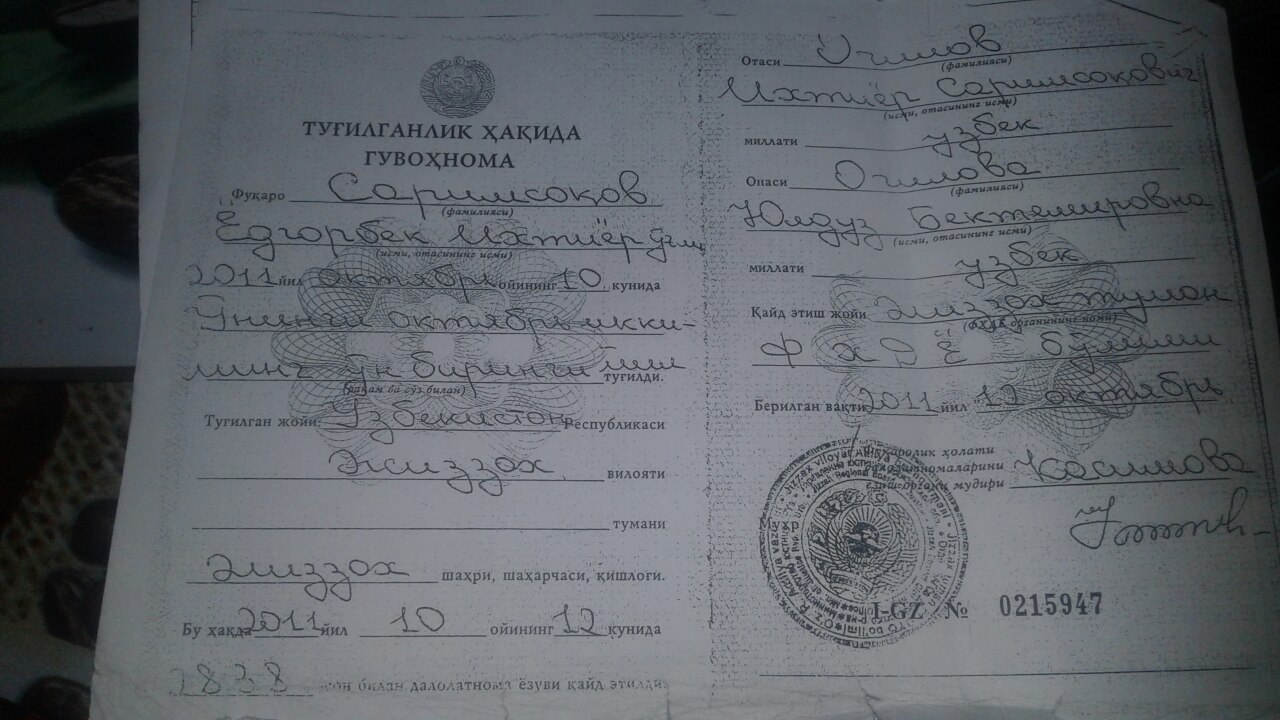 ТУҒИЛГАНЛИК ҲАҚИДА
ГУВОҲНОМА
Фуқаро Саримсоқов
(фамилияси)
Ёдгорбек Ихтиёр ўғли
(исми, отасининг исми)
2011 йил октябрь ойининг 10 кунида
Ўнинчи октябрь икки-
минг ўн биринчи йили туғилди.
(рақам ва сўз билан)
Туғилган жойи: Ўзбекистон Республикаси
Жиззах вилояти
тумани
Жиззах шаҳри, шаҳарчаси, қишлоғи.
Бу ҳақда 2011 йил 10 ойининг 12 кунида
2838 сон билан далолатнома ёзуви қайд этилди.
Отаси Очилов
(фамилияси)
Ихтиёр Саримсоқович
(исми, отасининг исми)
миллати узбек
Онаси Очилова
(фамилияси)
Юлдуз Бектемировна
(исми, отасининг исми)
миллати узбек
Қайд этиш жойи Жиззах туман
(ФҲДЁ органининг номи)
ФХДЁ бўлими
Берилган вақти 2011 йил 12 октябрь
Фуқаролик ҳолати
далолатномаларини
ёзиш органи мудири Косимова
Муҳр
I-GZ № 0215947